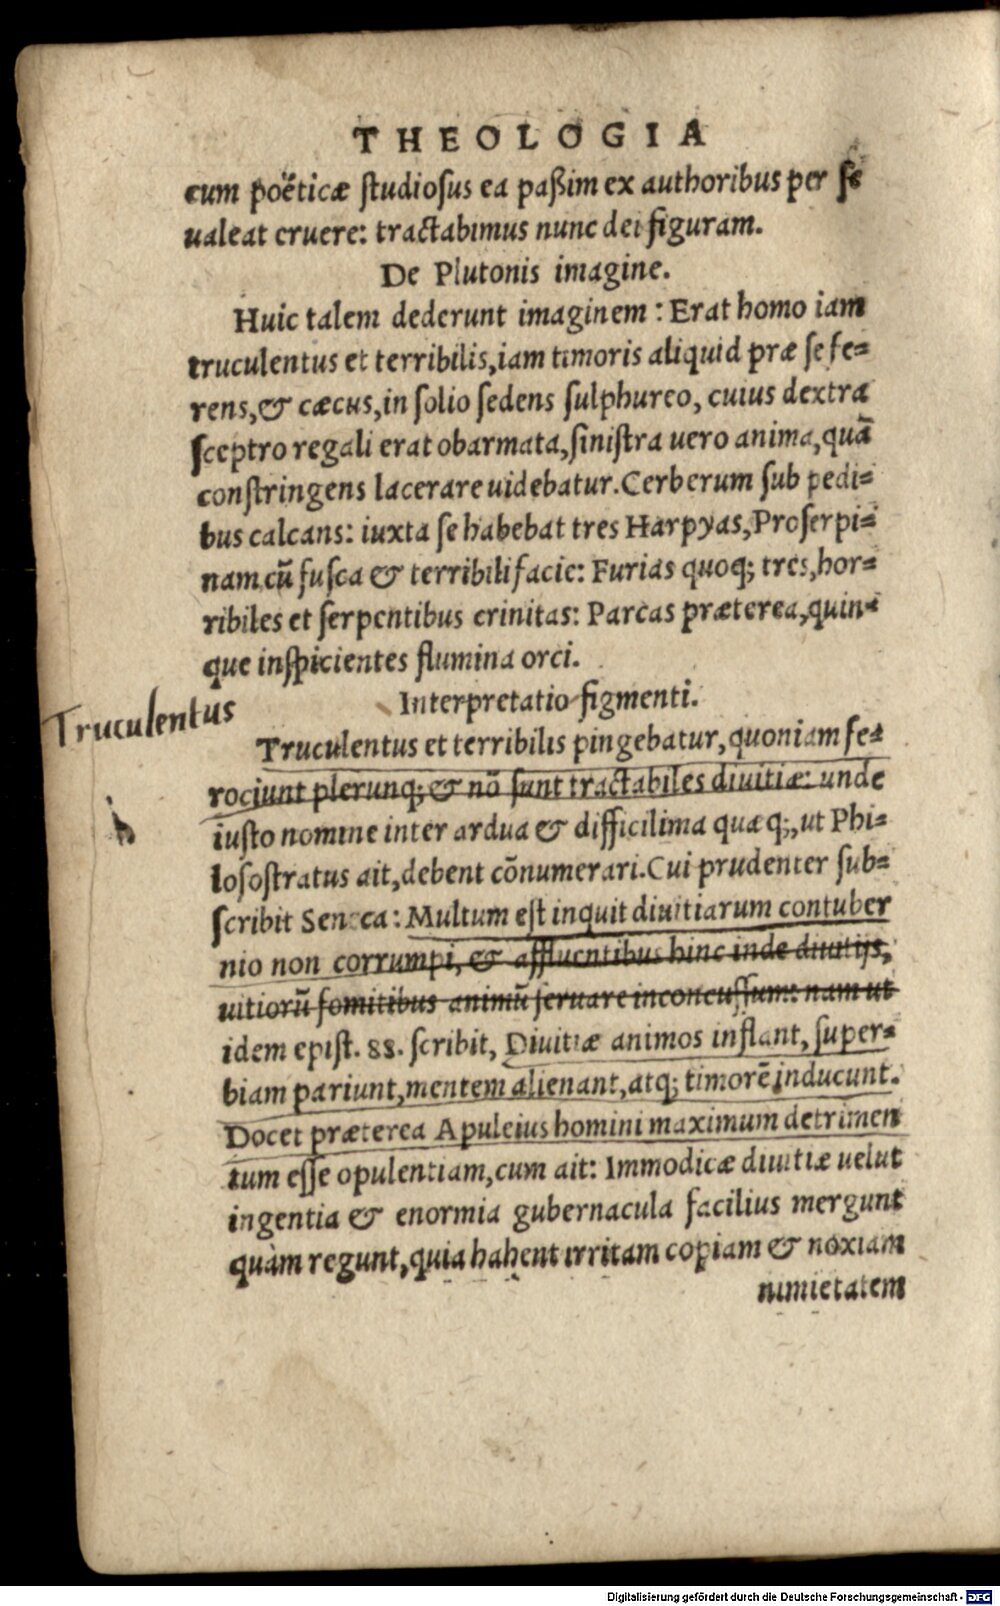 THEOLOGIA
cum poëticæ ſtudioſus ea paßim ex authoribus per ſe
ualeat eruere: tractabimus nunc dei figuram.
De Plutonis imagine.
Huic talem dederunt imaginem: Erat homo iam
truculentus et terribilis, iam timoris aliquid præ ſe fe=
rens, & cæcus, in ſolio ſedens ſulphureo, cuius dextra
ſceptro regali erat obarmata, ſiniſtra uero anima, quā
conſtringens lacerare uidebatur. Cerberum ſub pedi=
bus calcans: iuxta ſe habebat tres Harpyas, Proſerpi=
nam cū fuſca & terribili facie: Furias quoq; tres, hor=
ribiles et ſerpentibus crinitas: Parcas præterea, quin=
que inſpicientes flumina orci.
Interpretatio figmenti.
Truculentus
Truculentus et terribilis pingebatur, quoniam fe=
rociunt plerunq; & nō ſunt tractabiles diuitiæ: unde
iuſto nomine inter ardua & difficilima quæq;, ut Phi=
loſoſtratus ait, debent cōnumerari. Cui prudenter ſub=
ſcribit Seneca: Multum eſt inquit diuitiarum contuber
nio non corrumpi, & affluentibus hinc inde diuitijs,
uitiorū fomitibus animū ſeruare inconcuſſum: nam ut
idem epiſt. 88. ſcribit, Diuitiæ animos inflant, ſuper=
biam pariunt, mentem alienant, atq; timorē inducunt.
Docet præterea Apuleius homini maximum detrimen
tum eſſe opulentiam, cum ait: Immodicæ diuitiæ uelut
ingentia & enormia gubernacula facilius mergunt
quàm regunt, quia habent irritam copiam & noxiam
nimietatem
Digitalisierung gefördert durch die Deutsche Forschungsgemeinschaft - DFG